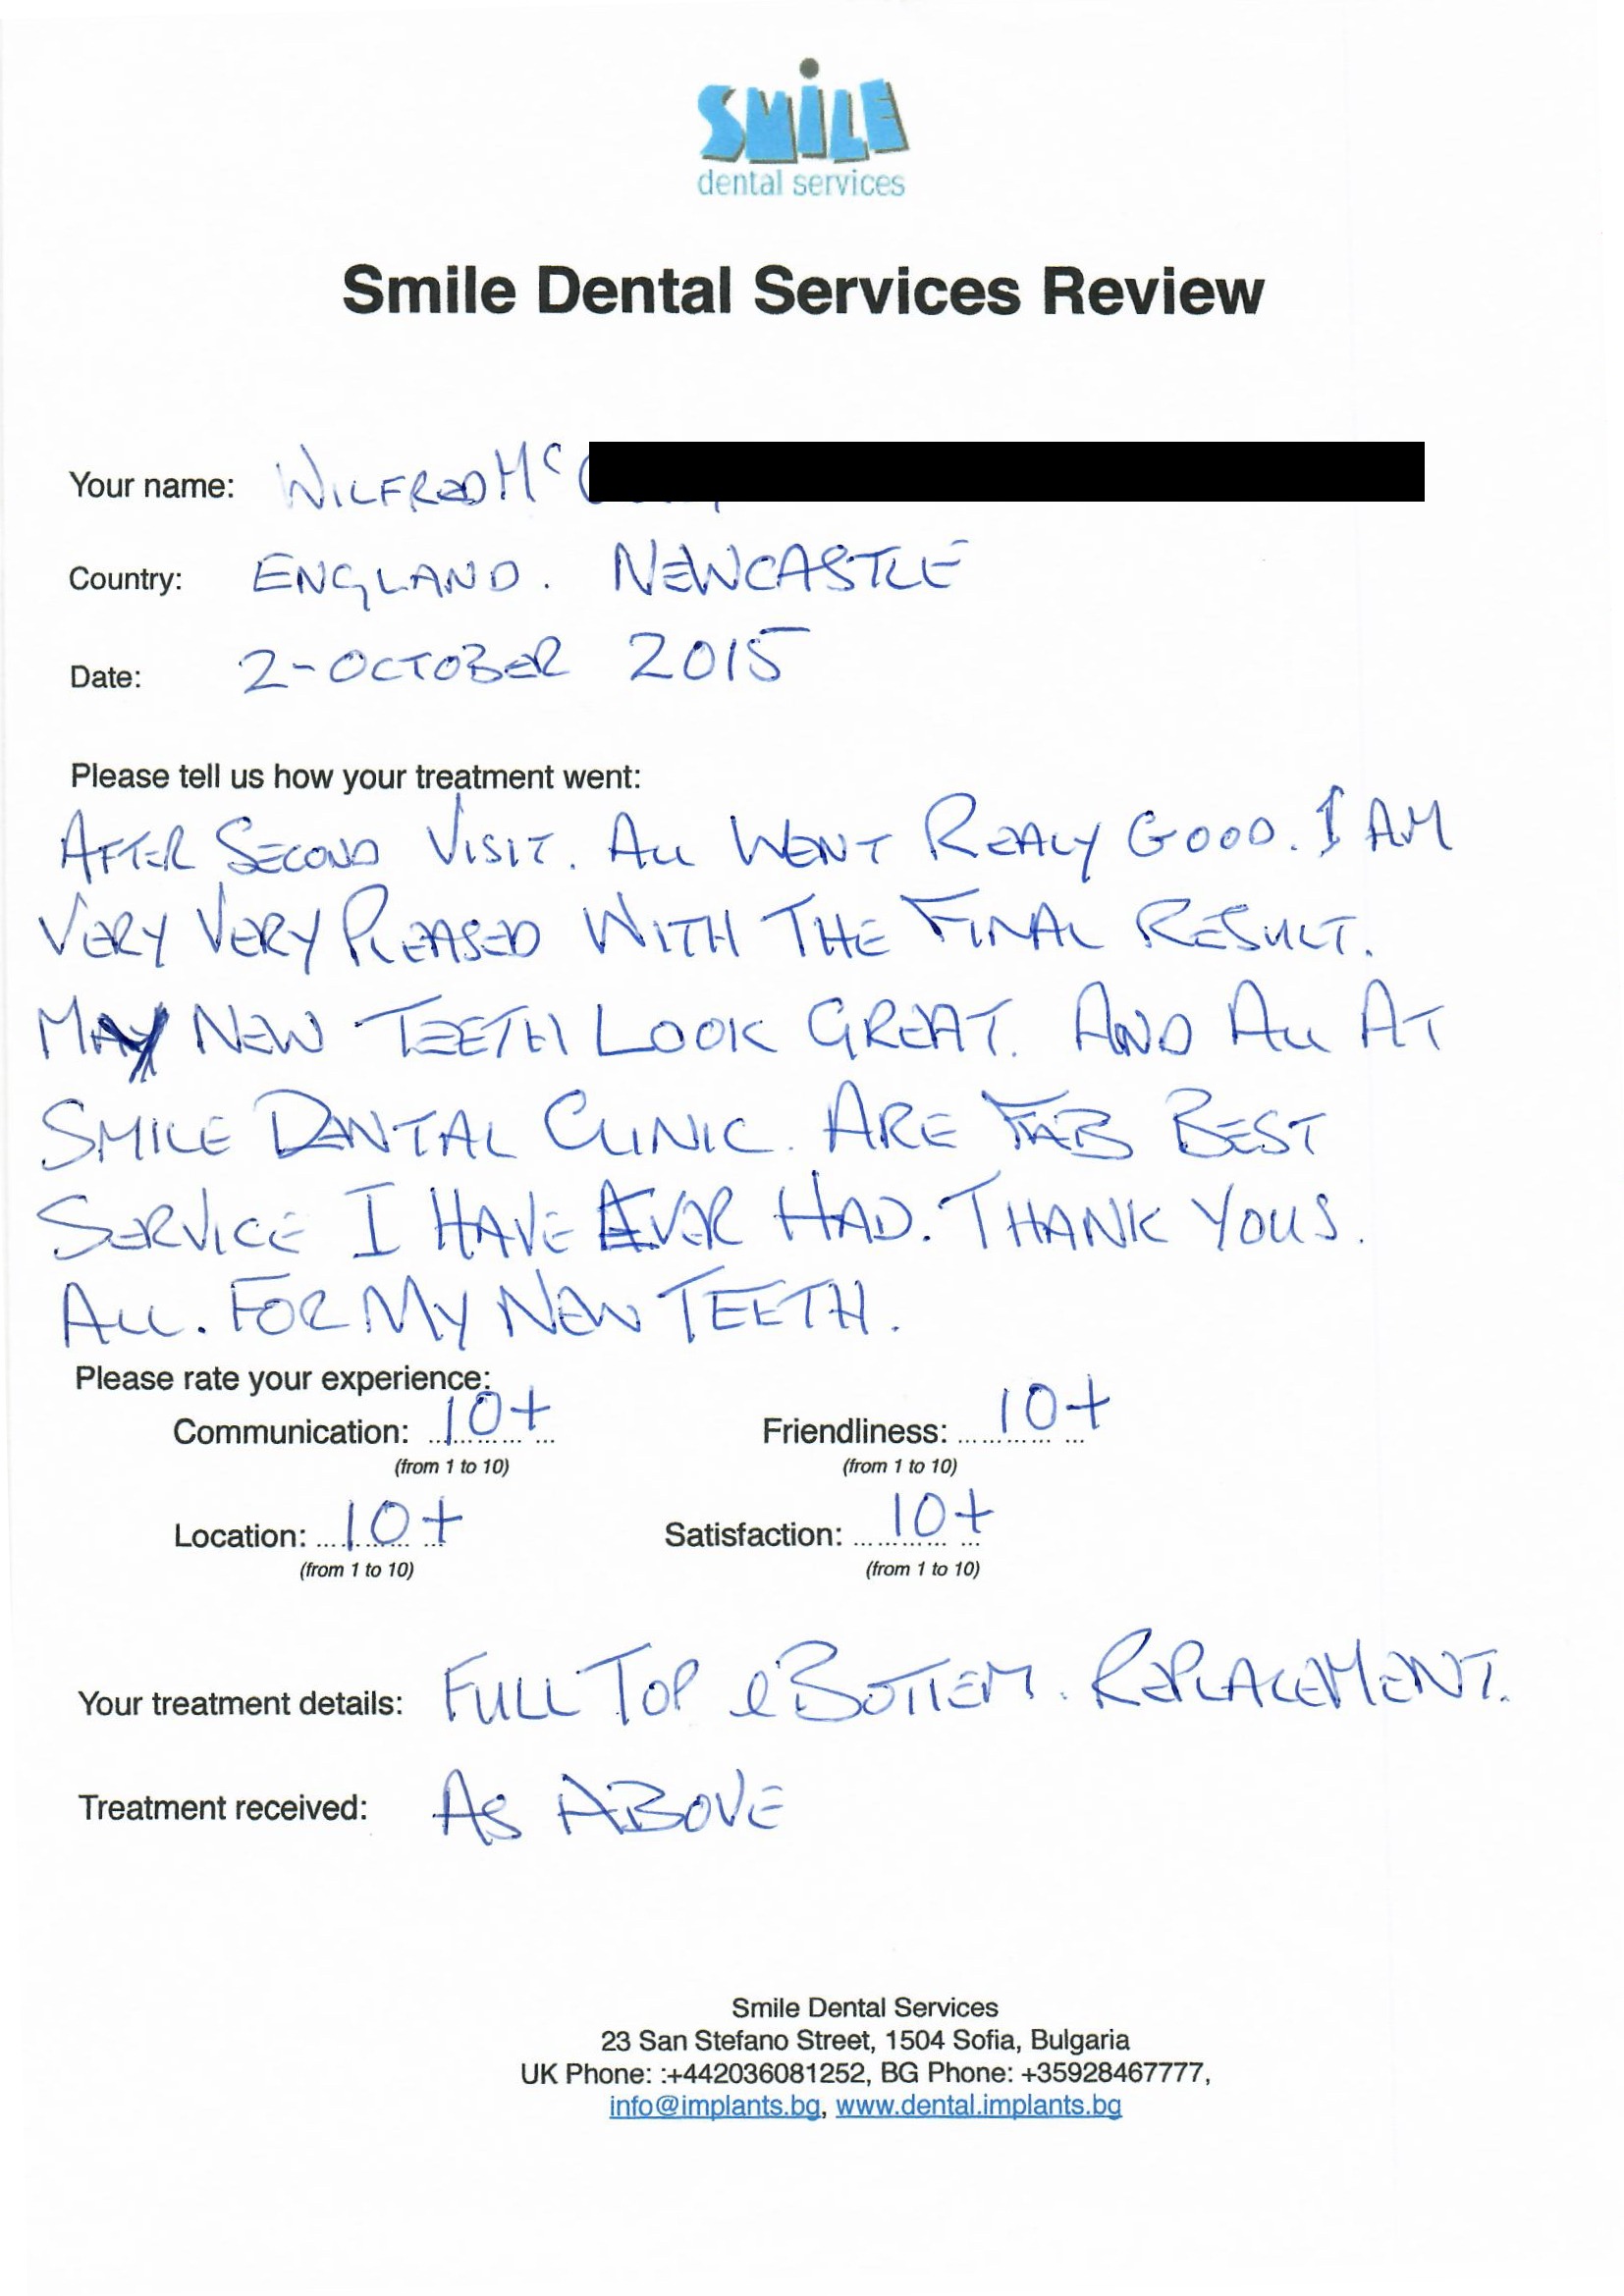 SMiLE
dental services
Smile Dental Services Review
Your name: WILFRED Mc
Country: ENGLAND. NEWCASTLE
Date: 2-OCTOBER 2015
Please tell us how your treatment went:
AFTER SECOND VISIT. ALL WENT REALY GOOD. I AM
VERY VERY PLEASED WITH THE FINAL RESULT.
MY NEW TEETH LOOK GREAT. AND ALL AT
SMILE DENTAL CLINIC. ARE FAB BEST
SERVICE I HAVE EVER HAD. THANK YOUS.
ALL. FOR MY NEW TEETH.
Please rate your experience:
Communication: 10+ Friendliness: 10+
(from 1 to 10) (from 1 to 10)
Location: 10+ Satisfaction: 10+
(from 1 to 10) (from 1 to 10)
Your treatment details: FULL TOP & BOTTEM. REPLACEMENT.
Treatment received: AS ABOVE
Smile Dental Services
23 San Stefano Street, 1504 Sofia, Bulgaria
UK Phone: :+442036081252, BG Phone: +35928467777,
info@implants.bg, www.dental.implants.bg